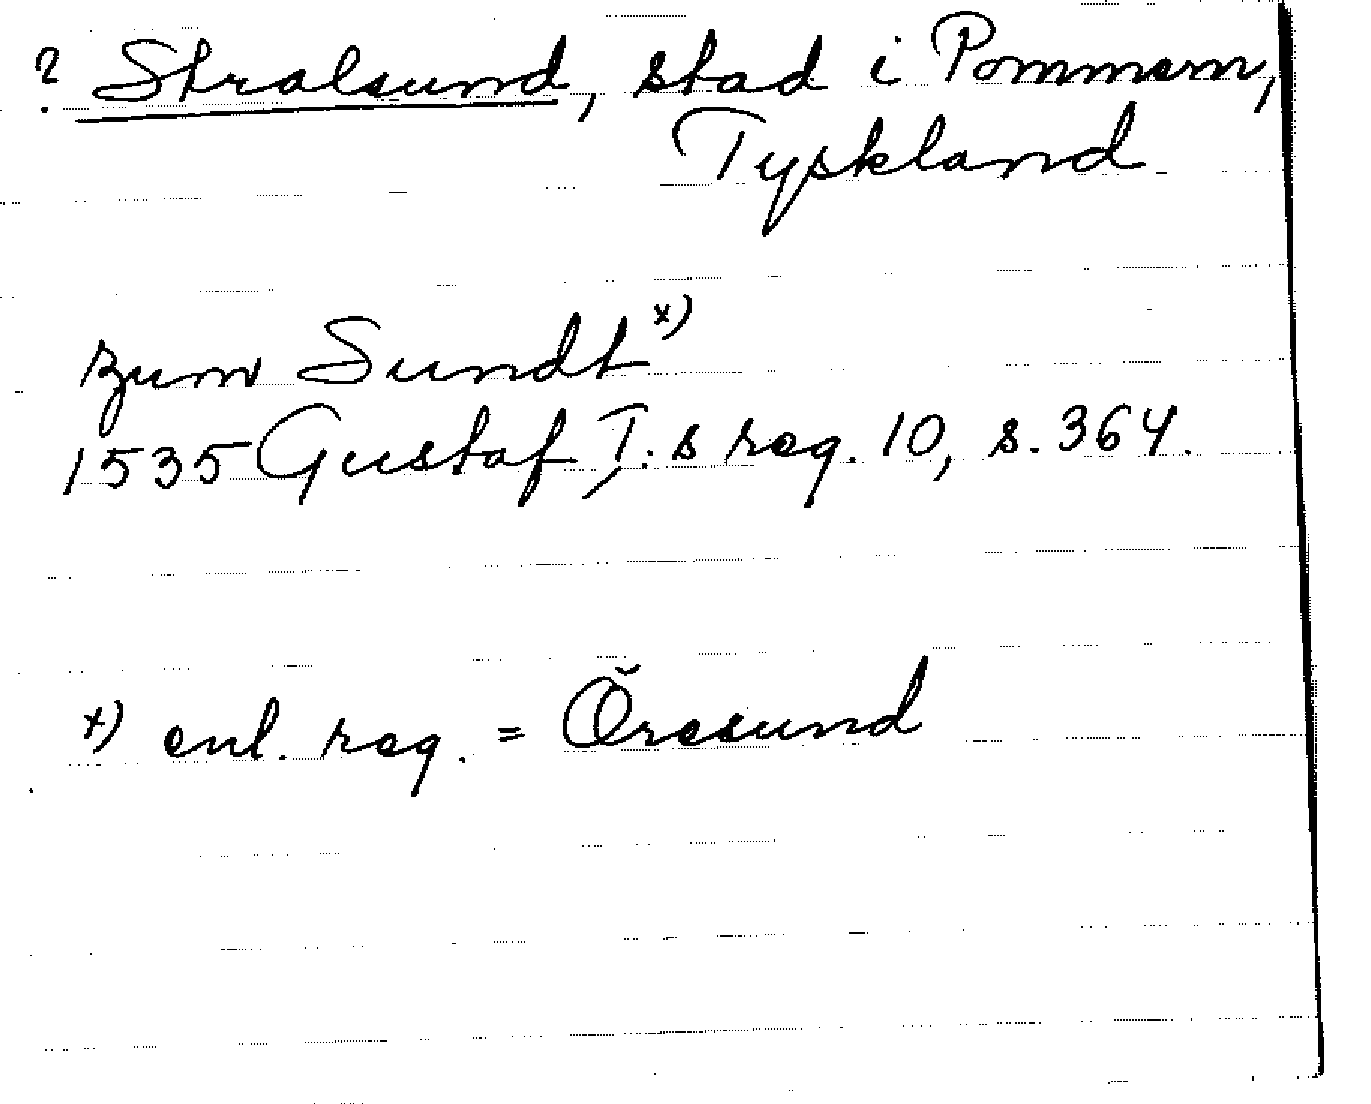 ? Stralsund, stad i Pommern,
Tyskland
zum Sundt x)
1535 Gustaf I:s reg. 10, s. 364.
x) enl. reg. = Öresund